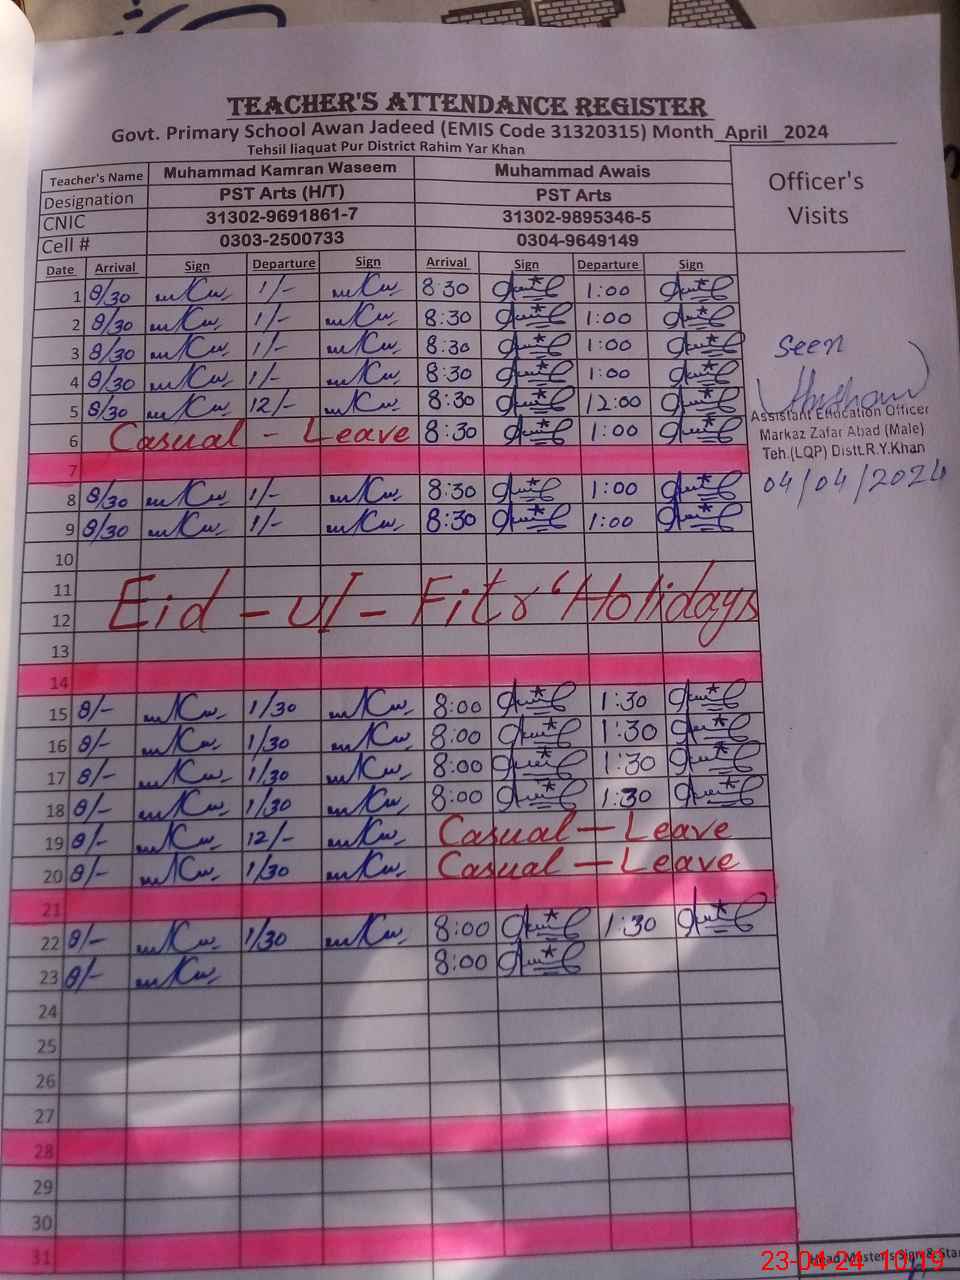 TEACHER'S ATTENDANCE REGISTER
Govt. Primary School Awan Jadeed (EMIS Code 31320315) Month April 2024
Tehsil liaquat Pur District Rahim Yar Khan
Teacher's Name Muhammad Kamran Waseem Muhammad Awais
Designation PST Arts (H/T) PST Arts
CNIC 31302-9691861-7 31302-9895346-5
Cell # 0303-2500733 0304-9649149
Officer's
Visits
Date Arrival Sign Departure Sign Arrival Sign Departure Sign
1 8/30 1/- 8:30 1:00
2 8/30 1/- 8:30 1:00
3 8/30 1/- 8:30 1:00
4 8/30 1/- 8:30 1:00
5 8/30 12/- 8:30 12:00
6 Casual - Leave 8:30 1:00
7
8 8/30 1/- 8:30 1:00
9 8/30 1/- 8:30 1:00
10
11
Eid - ul - Fitr Holidays
12
13
14
15 8/- 1/30 8:00 1:30
16 8/- 1/30 8:00 1:30
17 8/- 1/30 8:00 1:30
18 8/- 1/30 8:00 1:30
19 8/- 12/- Casual - Leave
20 8/- 1/30 Casual - Leave
21
22 8/- 1/30 8:00 1:30
23 8/- 8:00
24
25
26
27
28
29
30
31
seen
Assistant Education Officer
Markaz Zafar Abad (Male)
Teh.(LQP) Distt.R.Y.Khan
04/04/2024
Head Master's Sign &
23-04-24 10:19